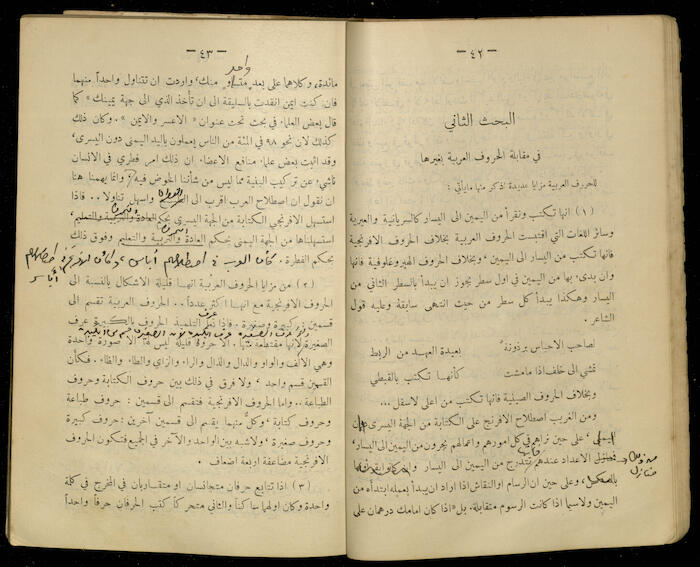 — ٤٢ —
البحث الثاني
في مقابلة الحروف العربية بغيرها
للحروف العربية مزايا عديدة نذكر منها ما يأتي :
(١) انها تكتب وتقرأ من اليمين الى اليسار كالسريانية والعبرية
وسائر اللغات التي اقتبست الحروف العربية بخلاف الحروف الافرنجية
فانها تكتب من اليسار الى اليمين ، وبخلاف الحروف الهيروغلوفية فانها
وان بدىء بها من اليمين في اول سطر يجوز ان يبدأ بالسطر الثاني من
اليسار وهكذا يبدأ كل سطر من حيث انتهى سابقة وعليه قول
الشاعر .
لصاحب الاحباس برذونة بعيدة العهد من الربط
تمشي الى خلف اذا ما مشت كأنها تكتب بالقبطي
وبخلاف الحروف الصينية فانها تكتب من اعلى لاسفل ...
ومن الغريب اصطلاح الافرنج على الكتابة من الجهة اليسرى
، على حين تراهم في كل امورهم واعمالهم يجرون من اليمين الى اليسار،
الاعداد عندهم تتدرج من اليمين الى اليسار
، وعلى حين ان الرسام او النقاش اذا اراد ان يبدأ بعمله ابتدأ به من
اليمين ولا سيما اذا كانت الرسوم متقابلة. بل «اذا كان امامك درهمان على
— ٤٣ —
واحد
مائدة، وكلاهما على بعد متساو منك، واردت ان تتناول واحداً منهما
فان كنت ايمن انقدت بالسليقة الى ان تأخذ الذي الى جهة يمينك » كما
قال بعض العلماء في بحث تحت عنوان « الاعسر والايمن » . وكان ذلك
كذلك لان نحو ٩٨ في المئة من الناس يعملون باليد اليمنى دون اليسرى،
وقد اثبت بعض علماء منافع الاعضاء ان ذلك امر فطري في الانسان
ناشىء عن تركيب البنية مما ليس من شأننا الخوض فيه وانما يهمنا هنا
ان نقول ان اصطلاح العرب اقرب الى واسهل تناولا .. فاذا
استسهل الافرنجي الكتابة من الجهة اليسرى بحكم العادة والتربية والتعليم،
استسهلناها من الجهة اليمنى بحكم العادة والتربية والتعليم وفوق ذلك
بحكم الفطرة .
(٢) من مزايا الحروف العربية انها قليلة الاشكال بالنسبة الى
الحروف الافرنجية مع انها اكثر عدداً .. الحروف العربية تقسم الى
قسمين : كبيرة وصغيرة . فاذا تعلم التلميذ الحروف الكبيرة عرف
الصغيرة لانها مقتطعة منها . الا حروفا قليلة ليس لها الا صورة واحدة
وهي الالف والواو والدال والذال والراء والزاي والطاء والظاء . فكأن
القسمين قسم واحد ، ولا فرق في ذلك بين حروف الكتابة وحروف
الطباعة .. واما الحروف الافرنجية فتقسم الى قسمين : حروف طباعة
وحروف كتابة ، وكل منهما يقسم الى قسمين آخرين : حروف كبيرة
وحروف صغيرة ، ولا شبه بين الواحد والآخر في الجميع فتكون الحروف
الافرنجية مضاعفة اربعة اضعاف .
(٣) اذا تتابع حرفان متجانسان او متقاربان في المخرج في كلمة
واحدة وكان اولهما ساكناً والثاني متحركاً كتب الحرفان حرفاً واحداً